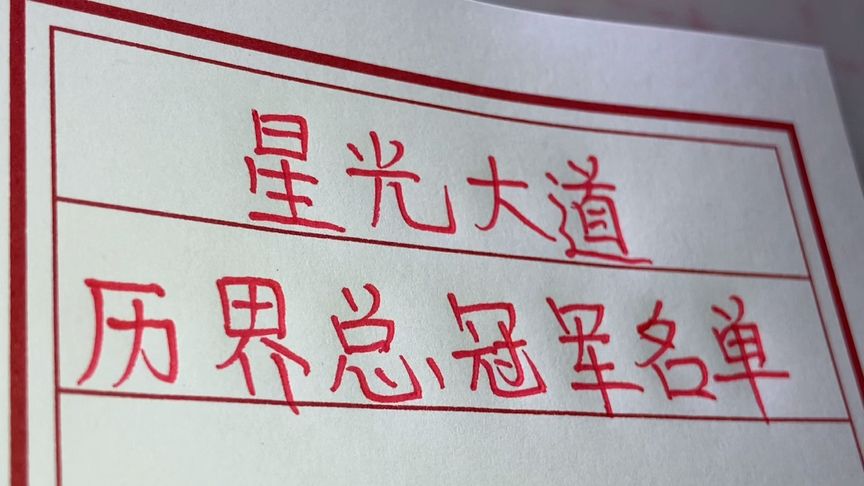 星光大道
历界总冠军名单